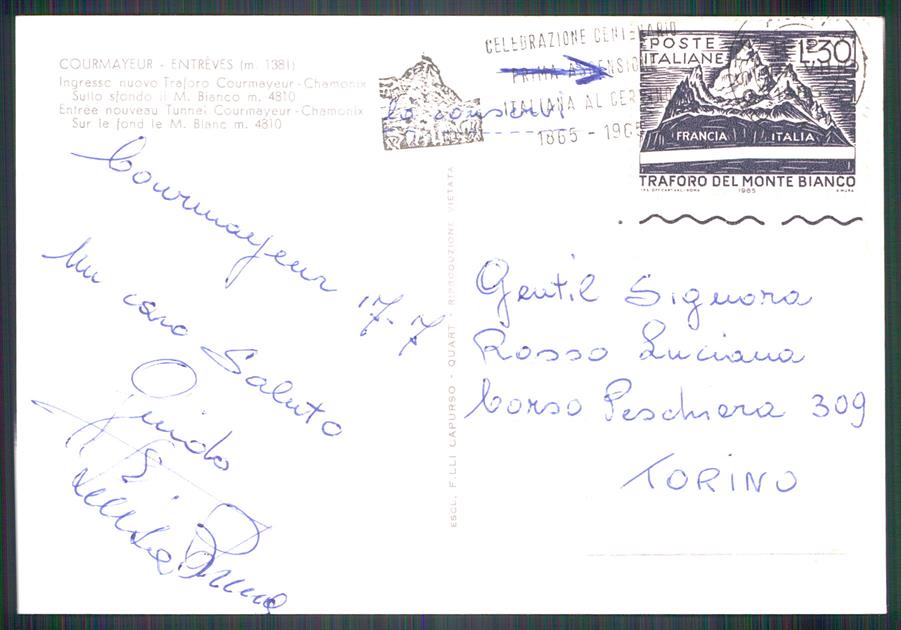 COURMAYEUR - ENTRÈVES (m. 1381)
Ingresso nuovo Traforo Courmayeur-Chamonix
Sullo sfondo il M. Bianco m. 4810
Entrée nouveau Tunnel Courmayeur-Chamonix
Sur le fond le M. Blanc m. 4810
CELEBRAZIONE CENTENARIO
PRIMA ASCENSIONE
ITALIANA AL CERVINO
1865 - 1965
lo conservi
POSTE ITALIANE L.30
FRANCIA ITALIA
TRAFORO DEL MONTE BIANCO
1965
Courmayeur 17-7
Un caro Saluto
Guido
ESCL. F.LLI LAPURSO - QUART - RIPRODUZIONE VIETATA
Gentil Signora
Rosso Luciana
Corso Peschiera 309
TORINO